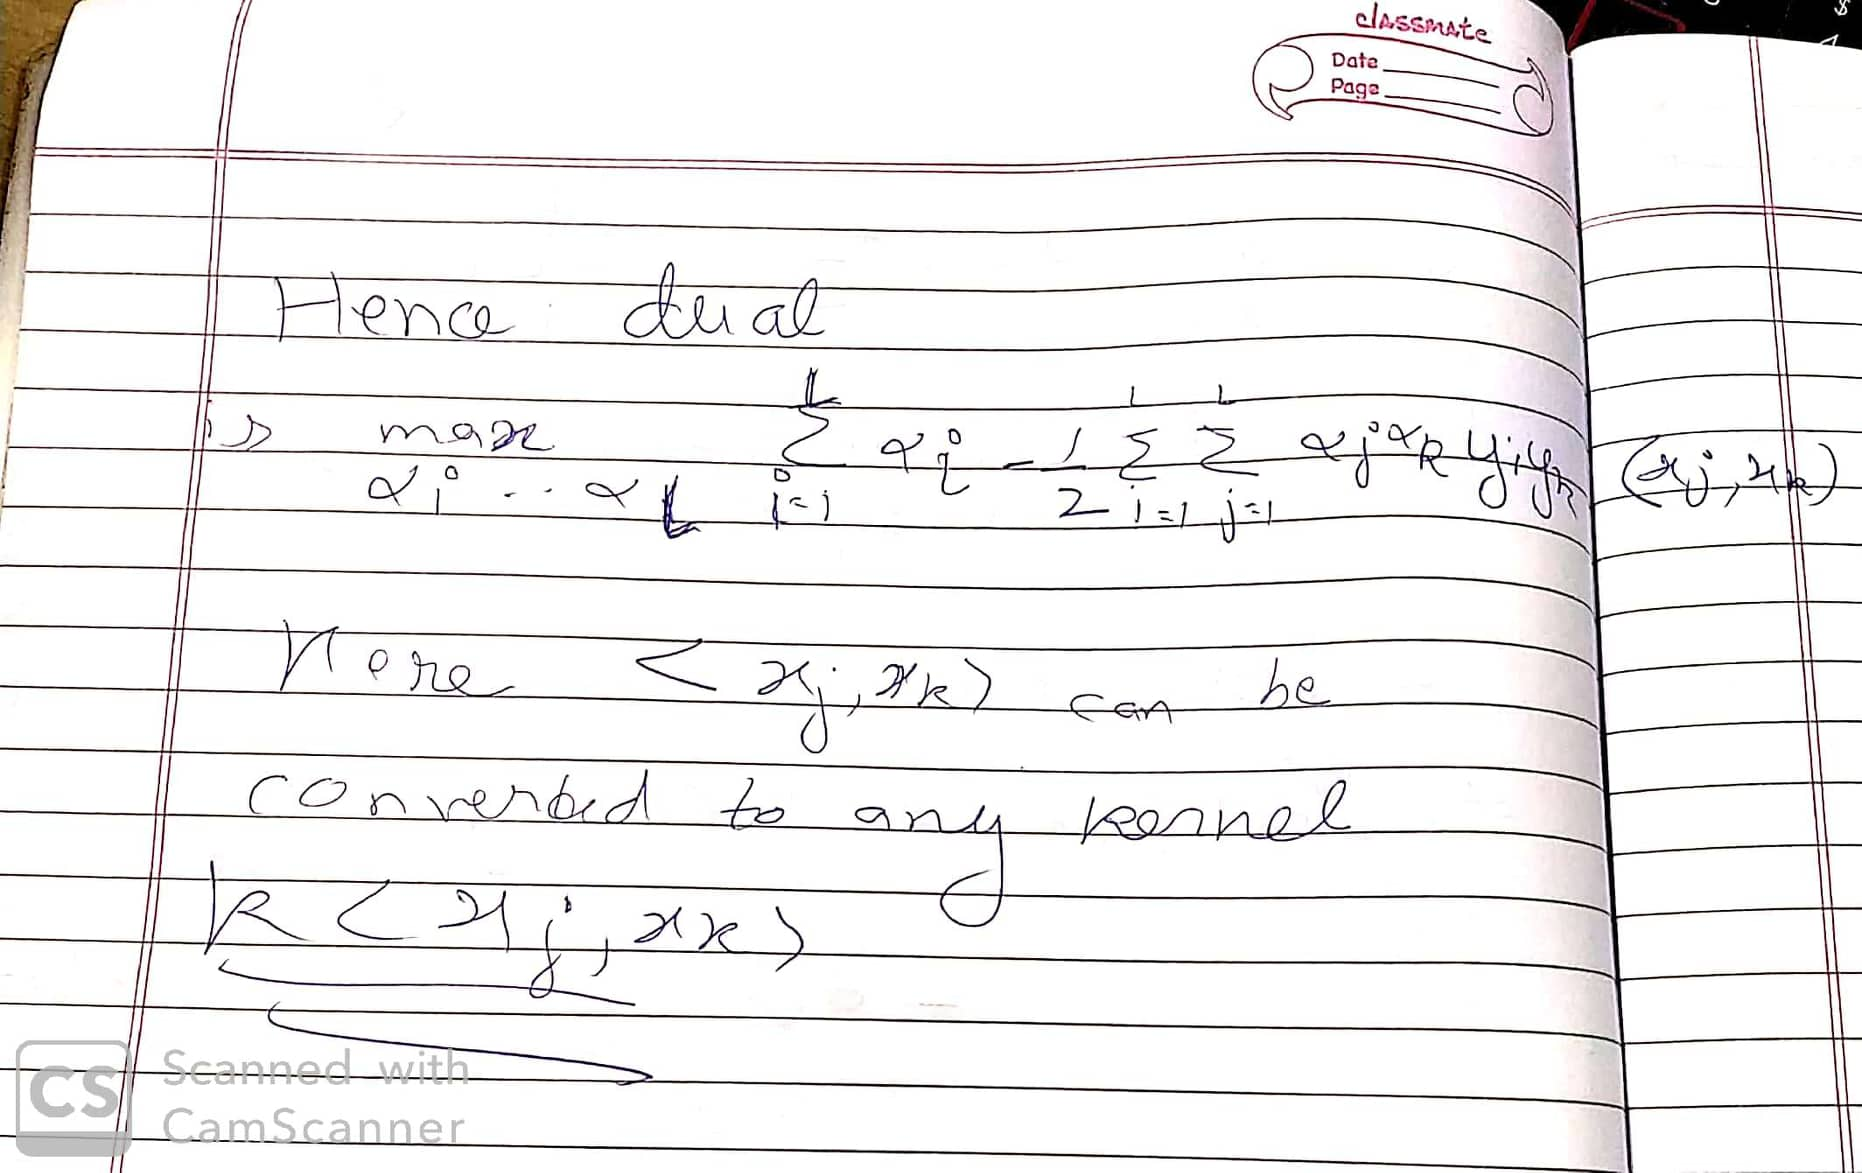 classmate
Date
Page
Hence dual
is max Σ αi - 1/2 Σ Σ αjαk yjyk (xj, xk)
αi .. αL i=1 i=1 j=1
Here <xj, xk> can be
converted to any kernel
K<xj, xk>
CS Scanned with
CamScanner